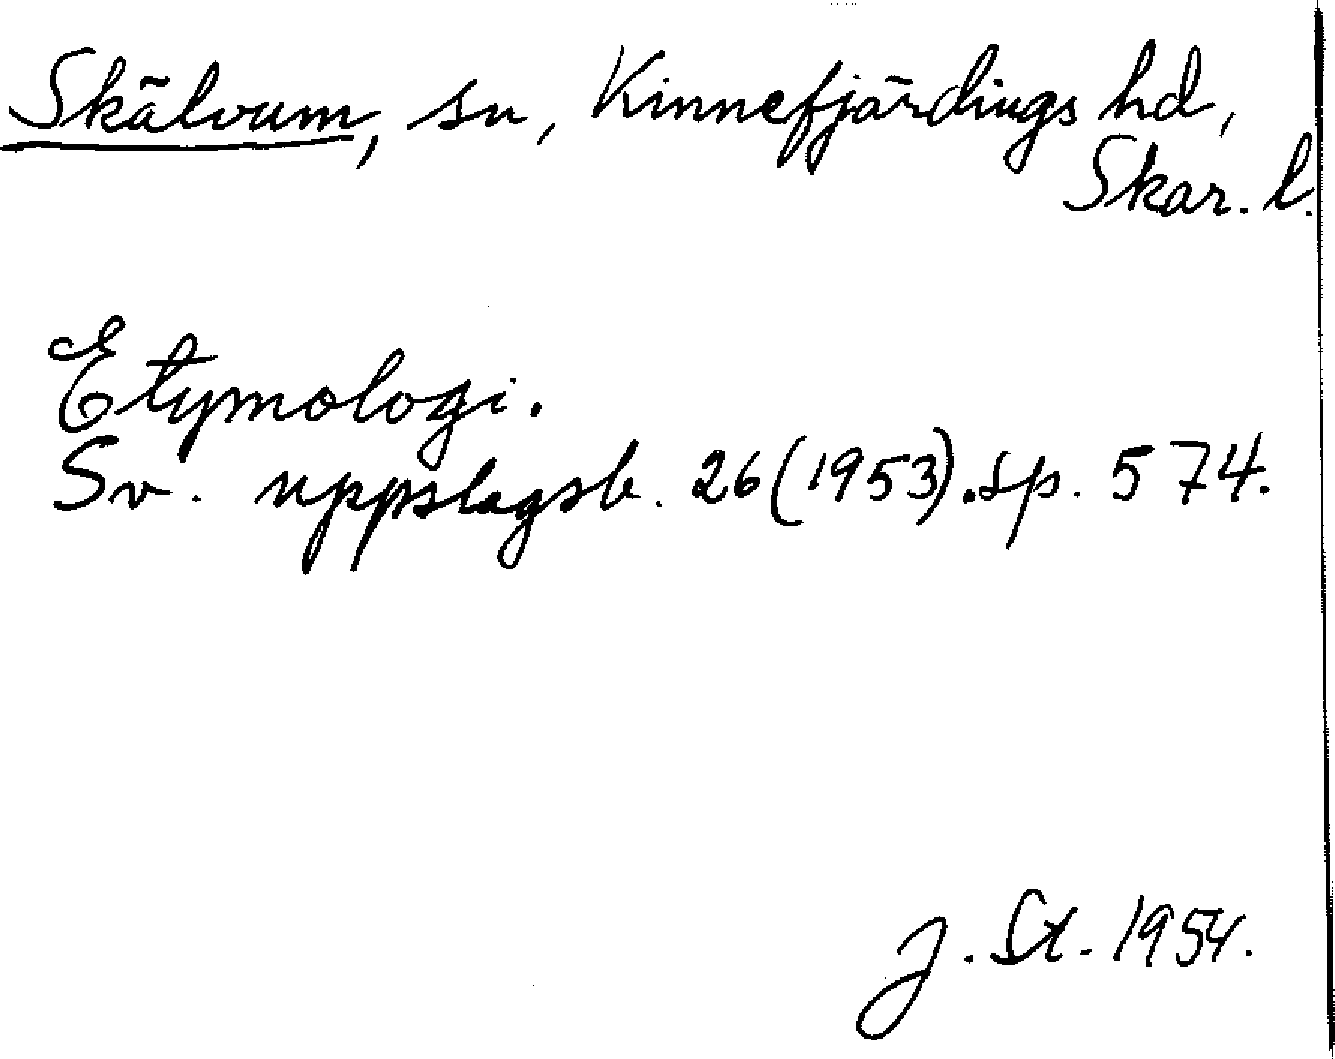 Skälvum, sn, Kinnefjärdings hd,
Skar. l.
Etymologi.
Sv. uppslagsb. 26 (1953). sp. 574.
J. St. 1954.